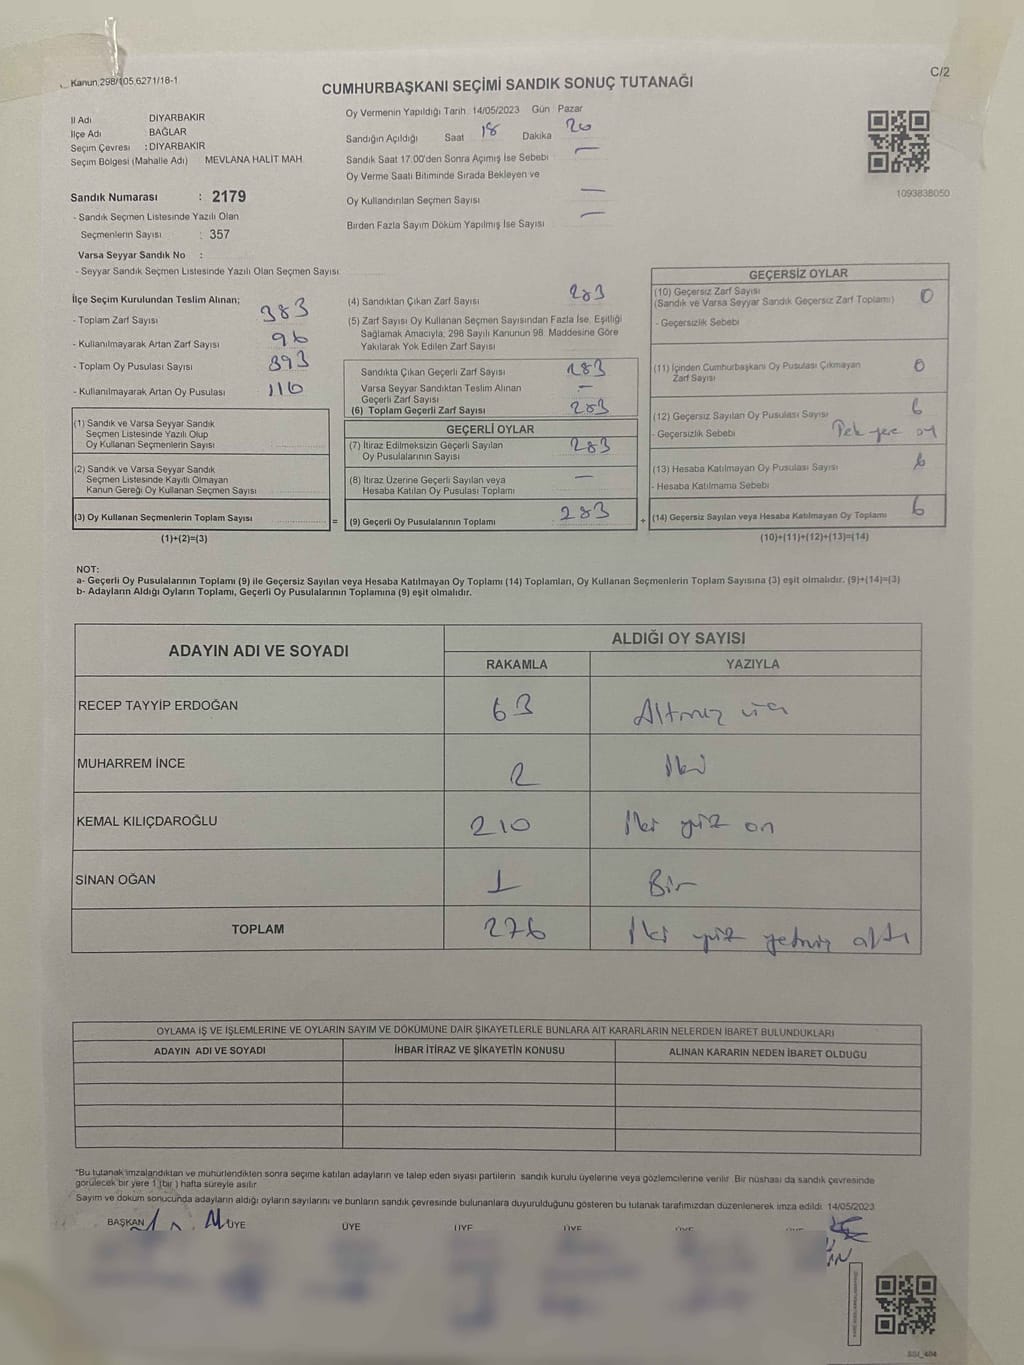 Kanun.298/105,6271/18-1
C/2
CUMHURBAŞKANI SEÇİMİ SANDIK SONUÇ TUTANAĞI
İl Adı DİYARBAKIR
İlçe Adı BAĞLAR
Seçim Çevresi :DİYARBAKIR
Seçim Bölgesi (Mahalle Adı) MEVLANA HALİT MAH.
Oy Vermenin Yapıldığı Tarih 14/05/2023 Gün Pazar
Sandığın Açıldığı Saat 18 Dakika 20
Sandık Saat 17.00'den Sonra Açımış İse Sebebi —
Oy Verme Saati Bitiminde Sırada Bekleyen ve
Oy Kullandırılan Seçmen Sayısı —
Birden Fazla Sayım Döküm Yapılmış İse Sayısı —
1093838050
Sandık Numarası : 2179
- Sandık Seçmen Listesinde Yazılı Olan
Seçmenlerin Sayısı : 357
Varsa Seyyar Sandık No :
- Seyyar Sandık Seçmen Listesinde Yazılı Olan Seçmen Sayısı
İlçe Seçim Kurulundan Teslim Alınan;
- Toplam Zarf Sayısı 383
- Kullanılmayarak Artan Zarf Sayısı 96
- Toplam Oy Pusulası Sayısı 393
- Kullanılmayarak Artan Oy Pusulası 110
(1) Sandık ve Varsa Seyyar Sandık
Seçmen Listesinde Yazılı Olup
Oy Kullanan Seçmenlerin Sayısı
(2) Sandık ve Varsa Seyyar Sandık
Seçmen Listesinde Kayıtlı Olmayan
Kanun Gereği Oy Kullanan Seçmen Sayısı
(3) Oy Kullanan Seçmenlerin Toplam Sayısı
(1)+(2)=(3)
(4) Sandıktan Çıkan Zarf Sayısı 283
(5) Zarf Sayısı Oy Kullanan Seçmen Sayısından Fazla İse, Eşitliği
Sağlamak Amacıyla, 298 Sayılı Kanunun 98. Maddesine Göre
Yakılarak Yok Edilen Zarf Sayısı
Sandıkta Çıkan Geçerli Zarf Sayısı 283
Varsa Seyyar Sandıktan Teslim Alınan
Geçerli Zarf Sayısı —
(6) Toplam Geçerli Zarf Sayısı 283
GEÇERLİ OYLAR
(7) İtiraz Edilmeksizin Geçerli Sayılan
Oy Pusulalarının Sayısı 283
(8) İtiraz Üzerine Geçerli Sayılan veya
Hesaba Katılan Oy Pusulası Toplamı —
= (9) Geçerli Oy Pusulalarının Toplamı 283 +
GEÇERSİZ OYLAR
(10) Geçersiz Zarf Sayısı 0
(Sandık ve Varsa Seyyar Sandık Geçersiz Zarf Toplamı)
- Geçersizlik Sebebi
(11) İçinden Cumhurbaşkanı Oy Pusulası Çıkmayan
Zarf Sayısı 0
(12) Geçersiz Sayılan Oy Pusulası Sayısı 6
- Geçersizlik Sebebi oy
(13) Hesaba Katılmayan Oy Pusulası Sayısı 6
- Hesaba Katılmama Sebebi
(14) Geçersiz Sayılan veya Hesaba Katılmayan Oy Toplamı 6
(10)+(11)+(12)+(13)=(14)
NOT:
a- Geçerli Oy Pusulalarının Toplamı (9) ile Geçersiz Sayılan veya Hesaba Katılmayan Oy Toplamı (14) Toplamları, Oy Kullanan Seçmenlerin Toplam Sayısına (3) eşit olmalıdır. (9)+(14)=(3)
b- Adayların Aldığı Oyların Toplamı, Geçerli Oy Pusulalarının Toplamına (9) eşit olmalıdır.
ADAYIN ADI VE SOYADI
ALDIĞI OY SAYISI
RAKAMLA YAZIYLA
RECEP TAYYİP ERDOĞAN 63 Altmış üç
MUHARREM İNCE 2 İki
KEMAL KILIÇDAROĞLU 210 İki yüz on
SİNAN OĞAN 1 Bir
TOPLAM 276 İki yüz yetmiş altı
OYLAMA İŞ VE İŞLEMLERİNE VE OYLARIN SAYIM VE DÖKÜMÜNE DAİR ŞİKAYETLERLE BUNLARA AİT KARARLARIN NELERDEN İBARET BULUNDUKLARI
ADAYIN ADI VE SOYADI İHBAR İTİRAZ VE ŞİKAYETİN KONUSU ALINAN KARARIN NEDEN İBARET OLDUĞU
*Bu tutanak imzalandıktan ve mühürlendikten sonra seçime katılan adayların ve talep eden siyasi partilerin sandık kurulu üyelerine veya gözlemcilerine verilir. Bir nüshası da sandık çevresinde
görülecek bir yere 1 (bir ) hafta süreyle asılır.
Sayım ve döküm sonucunda adayların aldığı oyların sayılarını ve bunların sandık çevresinde bulunanlara duyurulduğunu gösteren bu tutanak tarafımızdan düzenlenerek imza edildi. 14/05/2023
BAŞKAN ÜYE ÜYE ÜYE ÜYE
SSI_404